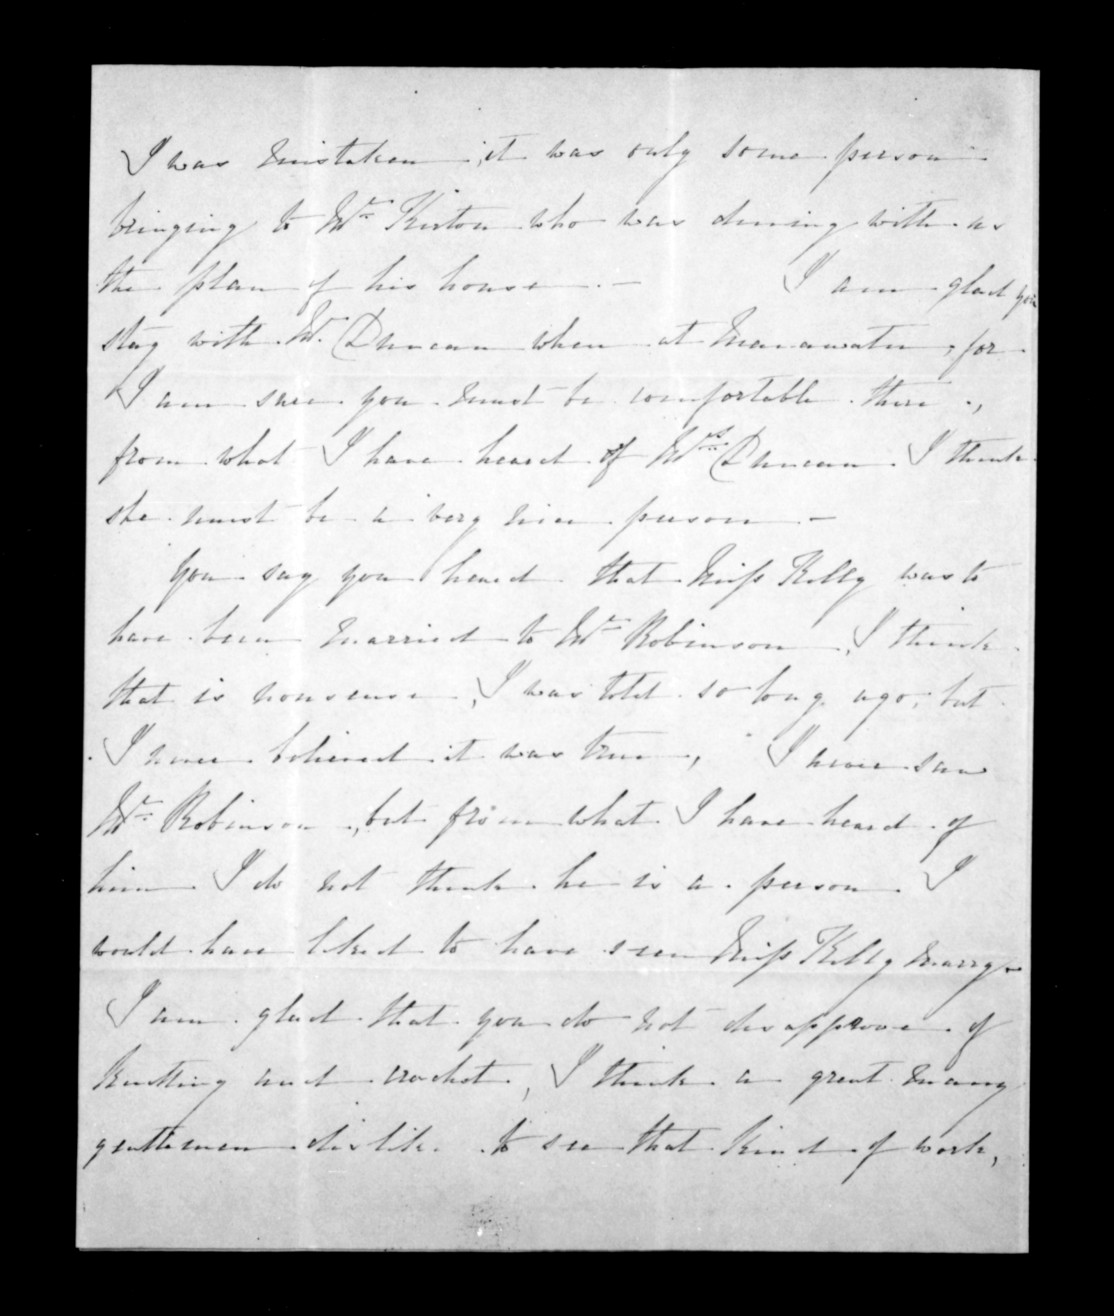 I was mistaken, it was only some person
bringing to Mr Kirton who was dining with us
the plan of his house. — I am glad you
stay with Mr. Duncan when at Manawatu, for
I am sure you must be comfortable there.,
from what I have heard of Mrs Duncan. I think
she must be a very nice person. —
You say you heard that Miss Kelly was to
have been married to Mr Robinson, I think
that is nonsense, I was told so long ago, but
I never believed it was true, I never saw
Mr Robinson, but from what I have heard of
him I do not think he is a person I
would have liked to have seen Miss Kelly marry.
I am glad that you do not disapprove of
knitting and crochet, I think a great many
gentlemen dislike to see that kind of work,